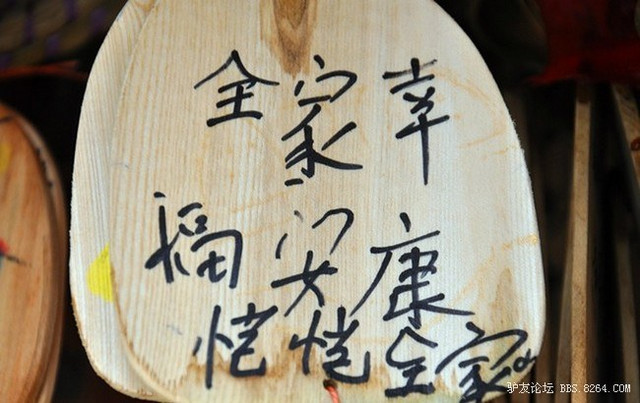 全家幸
福安康
恺恺全家
驴友论坛 BBS.8264.COM